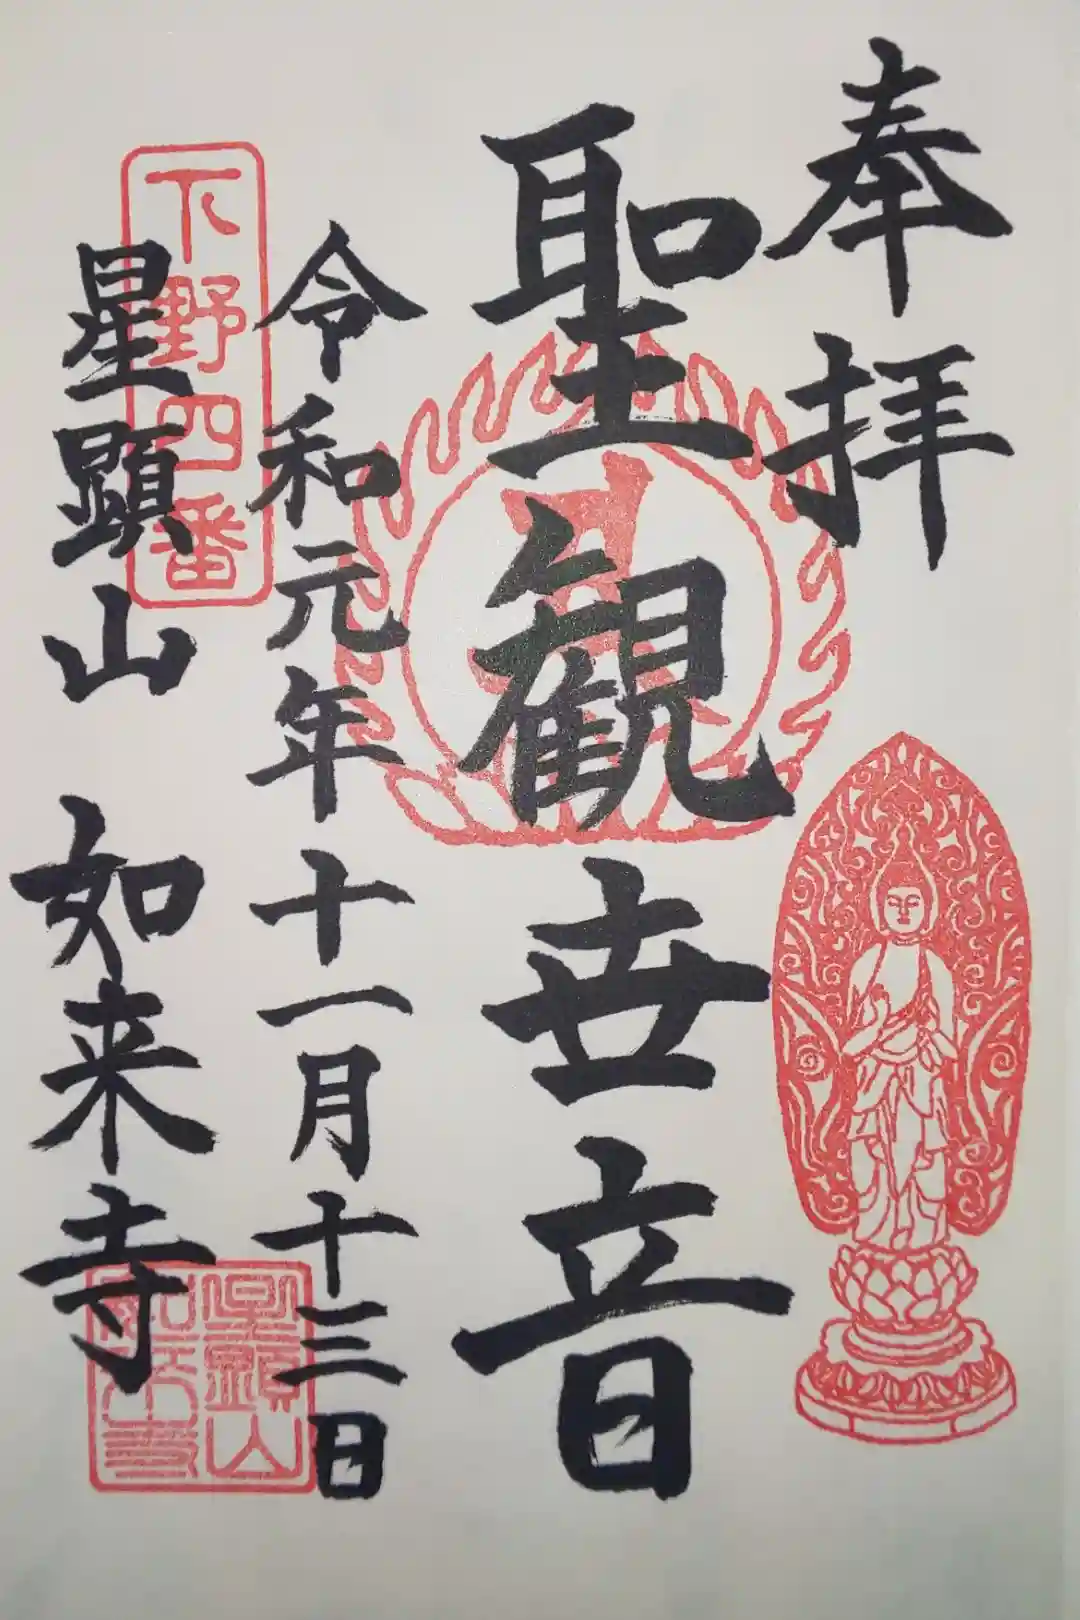 奉拝
聖観世音
令和元年十一月十三日
星顕山 如来寺
下野四番
星顕山
如来寺